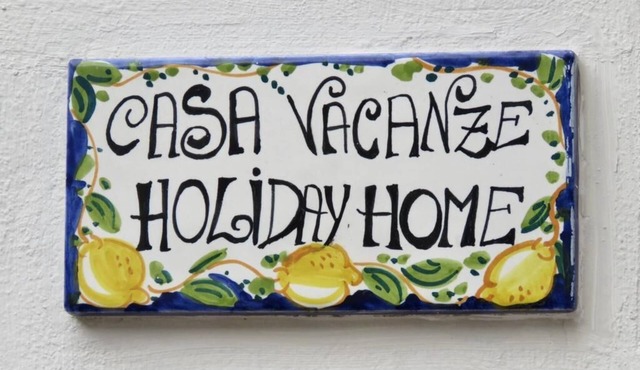 CASA VACANZE
HOLiDAY HOME